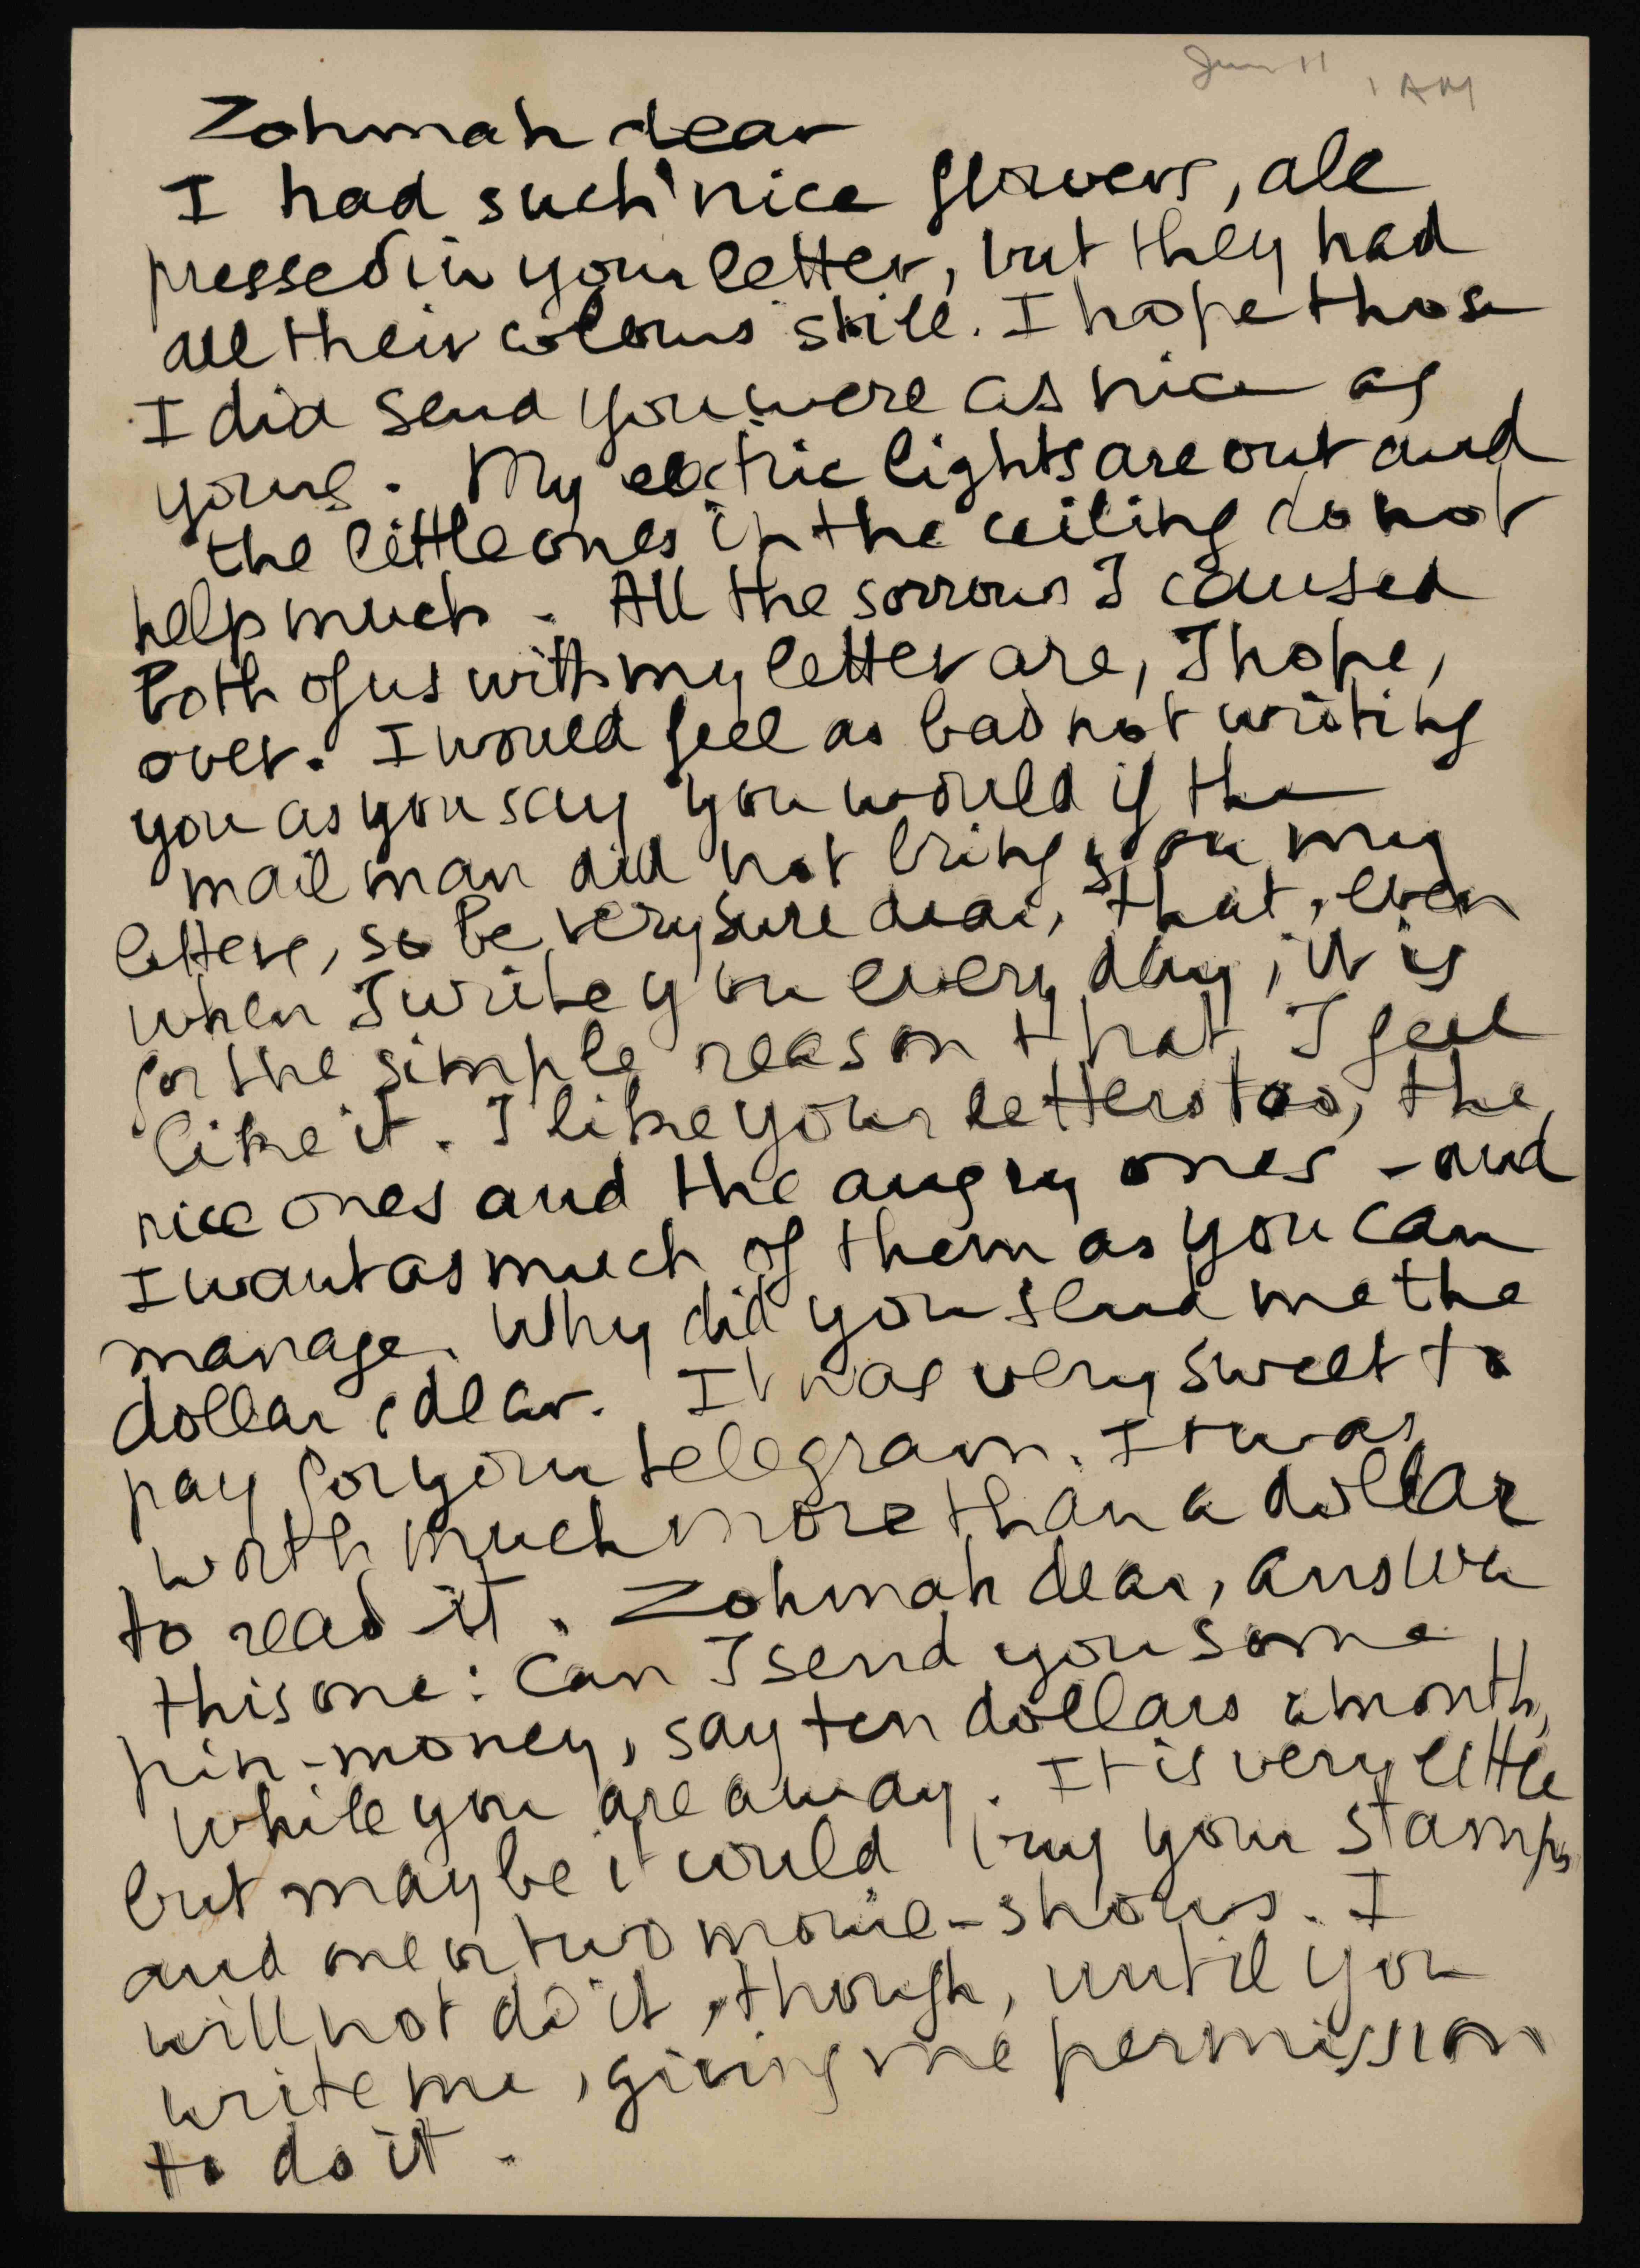 Jun 11 1 AM
Zohmah dear
I had such nice flowers, all
pressed in your letter, but they had
all their colours still. I hope those
I did send you were as nice as
yours. My electric lights are out and
the little ones in the ceiling do not
help much. All the sorrows I caused
both of us with my letter are, I hope,
over. I would feel as bad not writing
you as you say you would if the
mail man did not bring you my
letters, so be very sure dear, that, even
when I write you every day, it is
for the simple reason that I feel
like it. I like your letters too, the
nice ones and the angry ones - and
I want as much of them as you can
manage. Why did you send me the
dollar, dear. It was very sweet to
pay for your telegram. It was
worth much more than a dollar
to read it. Zohmah dear, answer
this one: Can I send you some
pin-money, say ten dollars a month,
while you are away. It is very little
but maybe it could buy your stamps
and one or two movie-shows. I
will not do it, though, until you
write me, giving me permission
to do it.